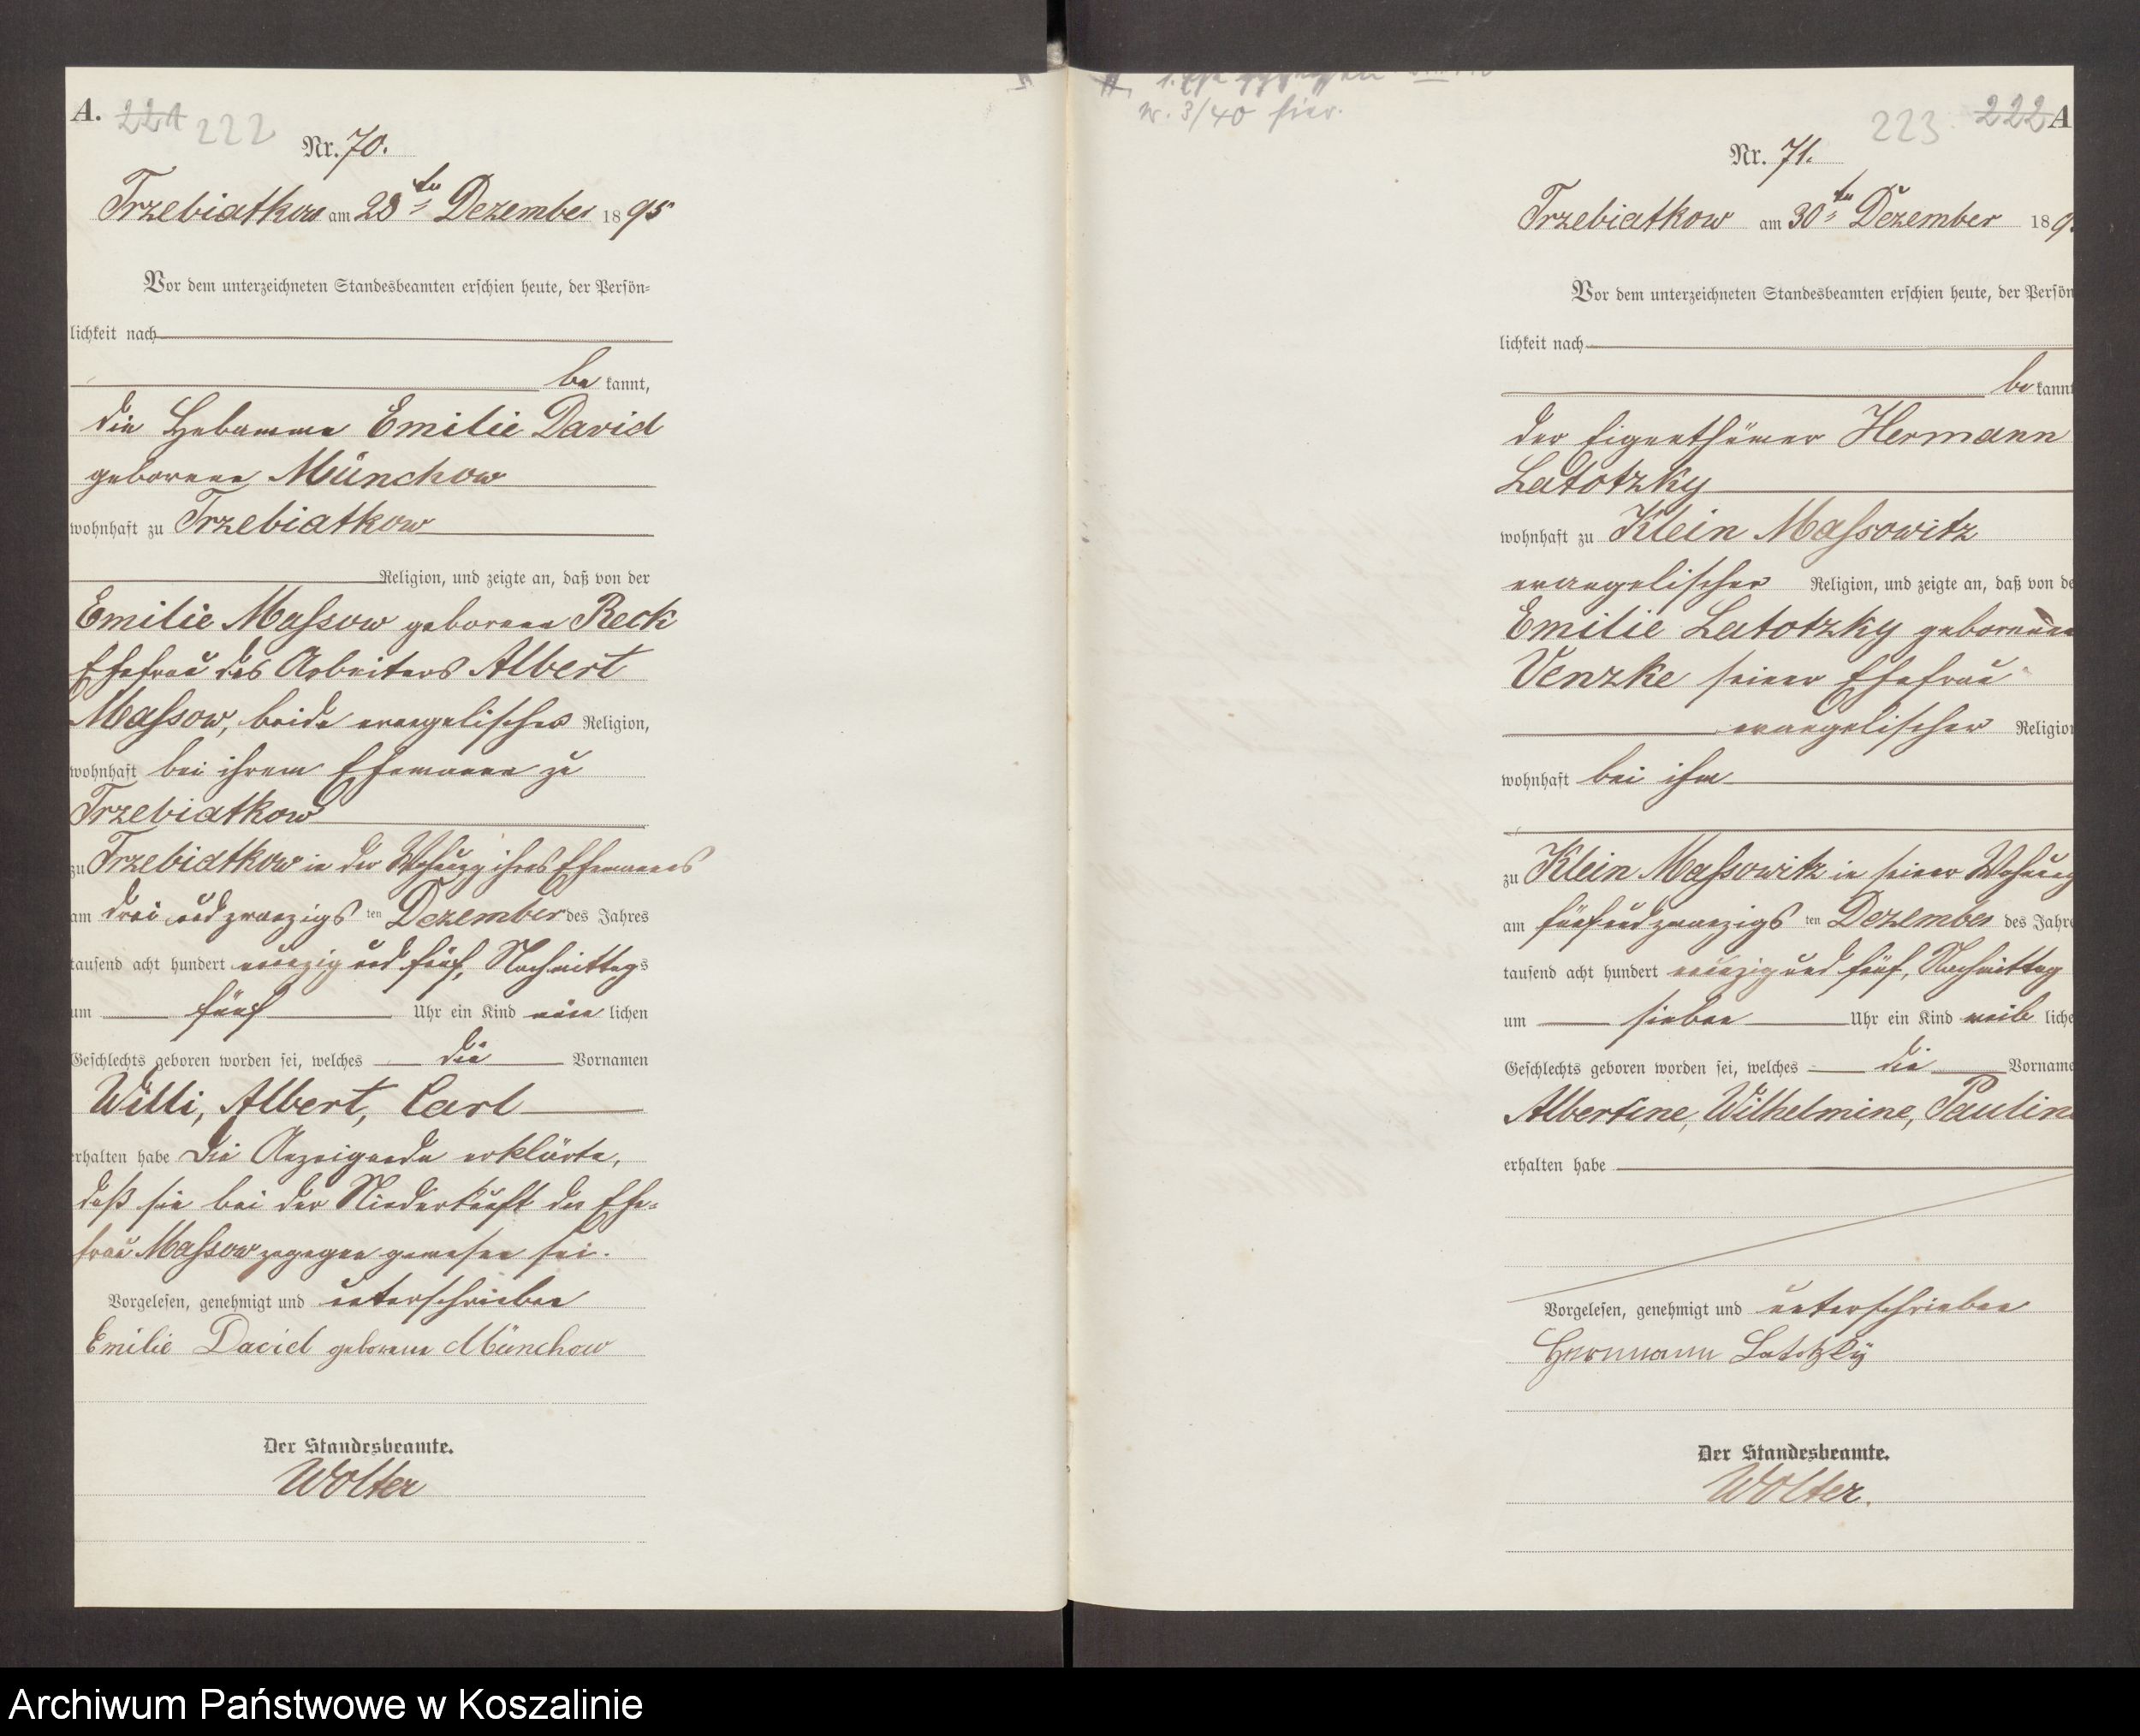 A. 221 222
Nr. 70.
Trzebiatkow am 28ten Dezember 1895
Vor dem unterzeichneten Standesbeamten erschien heute, der Persön-
lichkeit nach
be kannt,
die Hebamme Emilie David
geborene Münchow
wohnhaft zu Trzebiatkow
Religion, und zeigte an, daß von der
Emilie Massow geborenen Reck
Ehefrau des Arbeiters Albert
Massow, beide evangelischer Religion,
wohnhaft bei ihrem Ehemanne zu
Trzebiatkow
zu Trzebiatkow in der Wohnung ihres Ehemannes
am drei und zwanzigs ten Dezember des Jahres
tausend acht hundert neunzig und fünf, Nachmittags
um fünf Uhr ein Kind männ lichen
Geschlechts geboren worden sei, welches die Vornamen
Willi, Albert, Carl
erhalten habe Die Anzeigende erklärte,
daß sie bei der Niederkunft der Ehe-
frau Massow zugegen gewesen sei.
Vorgelesen, genehmigt und unterschrieben
Emilie David geborene Münchow
Der Standesbeamte.
Wolter
1. Ehe
nr. 3/40 hier.
223 222 A
Nr. 71.
Trzebiatkow am 30ten Dezember 189
Vor dem unterzeichneten Standesbeamten erschien heute, der Persön
lichkeit nach
be kannt
der Eigenthümer Hermann
Latotzky
wohnhaft zu Klein Massowitz
evangelischer Religion, und zeigte an, daß von de
Emilie Latotzky geborenen
Venzke seiner Ehefrau
evangelischer Religion
wohnhaft bei ihm
zu Klein Massowitz in seiner Wohnung
am fünfundzwanzigs ten Dezember des Jahre
tausend acht hundert neunzig und fünf, Nachmittag
um sieben Uhr ein Kind weib liche
Geschlechts geboren worden sei, welches die Vorname
Albertine, Wilhelmine, Pauline
erhalten habe
Vorgelesen, genehmigt und unterschrieben
Hermann Latotzky
Der Standesbeamte.
Wolter.
Archiwum Państwowe w Koszalinie